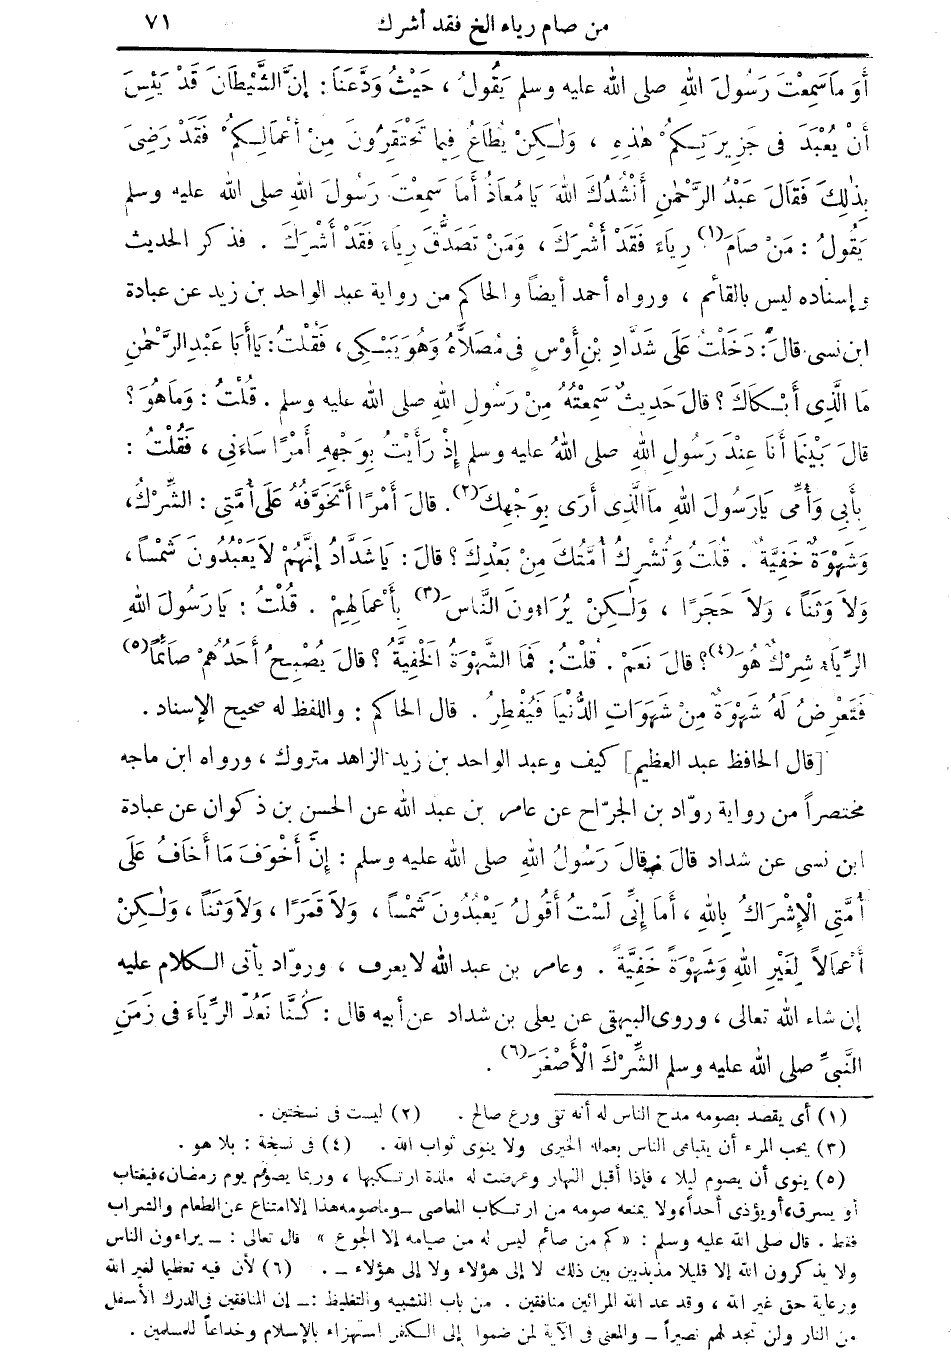 من صام رياء الخ فقد أشرك ٧١
أَوَ مَا سَمِعْتَ رَسُولَ اللهِ صلى الله عليه وسلم يَقُولُ ، حَيْثُ وَدَّعَنَا : إِنَّ الشَّيْطَانَ قَدْ يَئِسَ
أَنْ يُعْبَدَ فى جَزِيرَتِكُمْ هٰذِهِ ، وَلٰكِنْ يُطَاعُ فِيما تَحْتَقِرُونَ مِنْ أَعْمَالِكُمْ فَقَدْ رَضِىَ
بِذٰلِكَ فَقَالَ عَبْدُ الرَّحْمٰنِ أَنْشُدُكَ اللهَ يَا مُعَاذُ أَمَا سَمِعْتَ رَسُولَ اللهِ صلى الله عليه وسلم
يَقُولُ : مَنْ صَامَ (١) رِيَاءً فَقَدْ أَشْرَكَ ، وَمَنْ تَصَدَّقَ رِيَاءً فَقَدْ أَشْرَكَ . فذكر الحديث
وإسناده ليس بالقائم ، ورواه أحمد أيضاً والحاكم من رواية عبد الواحد بن زيد عن عبادة
ابن نسى قالَ : دَخَلْتُ عَلَى شَدَّادِ بْنِ أَوْسٍ فى مُصَلاَّهُ وَهُوَ يَبْكِى ، فَقُلْتُ : يَا أَبَا عَبْدِ الرَّحْمٰنِ
مَا الَّذِى أَبْكَاكَ ؟ قالَ حَدِيثٌ سَمِعْتُهُ مِنْ رَسُولِ اللهِ صلى الله عليه وسلم . قُلْتُ : وَمَا هُوَ ؟
قالَ بَيْنَما أَنَا عِنْدَ رَسُولِ اللهِ صلى اللهُ عليه وسلم إِذْ رَأَيْتُ بِوَجْهِهِ أَمْرًا سَاءَنِى ، فَقُلْتُ :
بِأَبِى وَأُمِّى يَا رَسُولَ اللهِ مَا الَّذِى أَرَى بِوَجْهِكَ (٢) . قالَ أَمْرًا أَتَخَوَّفُهُ عَلَى أُمَّتِى : الشِّرْكُ،
وَشَهْوَةٌ خَفِيَّةٌ . قُلْتُ وَتُشْرِكُ أُمَّتُكَ مِنْ بَعْدِكَ ؟ قالَ : يَا شَدَّادُ إِنَّهُمْ لاَ يَعْبُدُونَ شَمْساً ،
وَلاَ وَثَناً ، وَلاَ حَجَرًا ، وَلٰكِنْ يُرَاءُونَ النَّاسَ (٣) بِأَعْمَالِهِمْ . قُلْتُ : يَا رَسُولَ اللهِ
الرِّيَاءُ شِرْكٌ هُوَ (٤) ؟ قالَ نَعَمْ . قُلْتُ : فَمَا الشَّهْوَةُ الْخَفِيَّةُ ؟ قالَ يُصْبِحُ أَحَدُهُمْ صَائِماً (٥)
فَتَعْرِضُ لَهُ شَهْوَةٌ مِنْ شَهَوَاتِ الدُّنْيَا فَيُفْطِرُ . قال الحاكم : واللفظ له صحيح الإسناد .
[قال الحافظ عبد العظيم] كيف وعبد الواحد بن زيد الزاهد متروك ، ورواه ابن ماجه
مختصراً من رواية روّاد بن الجرّاح عن عامر بن عبد الله عن الحسن بن ذكوان عن عبادة
ابن نسى عن شداد قالَ : قالَ رَسُولُ اللهِ صلى الله عليه وسلم : إِنَّ أَخْوَفَ مَا أَخَافُ عَلَى
أُمَّتِى الْإِشْرَاكُ بِاللهِ ، أَمَا إِنِّى لَسْتُ أَقُولُ يَعْبُدُونَ شَمْساً ، وَلاَ قَمَرًا ، وَلاَ وَثَناً ، وَلٰكِنْ
أَعْمَالاً لِغَيْرِ اللهِ وَشَهْوَةً خَفِيَّةً . وعامر بن عبد الله لا يعرف ، وروّاد يأتى الكلام عليه
إن شاء الله تعالى ، وروى البيهقى عن يعلى بن شداد عن أبيه قال : كُنَّا نَعُدّ الرِّيَاءَ فى زَمَنِ
النَّبىِّ صلى الله عليه وسلم الشِّرْكَ الْأَصْغَرَ (٦) .
(١) أى يقصد بصومه مدح الناس له أنه تقى ورع صالح . (٢) ليست فى نسختين .
(٣) يحب المرء أن يتباهى الناس بعمله الخيرى ولا ينوى ثواب الله . (٤) فى نسخة : بلا هو .
(٥) ينوى أن يصوم ليلا ، فإذا أقبل النهار وعرضت له ملذة ارتكبها ، وربما يصوم يوم رمضان، فيغتاب
أو يسرق، أو يؤذى أحداً، ولا يمنعه صومه من ارتكاب المعاصى — وما صومه هذا إلا امتناع عن الطعام والشراب
فقط . قال صلى الله عليه وسلم : « كم من صائم ليس له من صيامه إلا الجوع » قال تعالى : — يراءون الناس
ولا يذكرون الله إلا قليلا مذبذبين بين ذلك لا إلى هؤلاء ولا إلى هؤلاء — . (٦) لأن فيه تعظيما لغير الله
ورعاية حق غير الله ، وقد عد الله المرائين منافقين . من باب التشبيه والتغليظ : — إن المنافقين فى الدرك الأسفل
من النار ولن تجد لهم نصيراً — والمعنى فى الآية لمن ضموا إلى الكفر استهزاء بالإسلام وخداعاً للمسلمين .